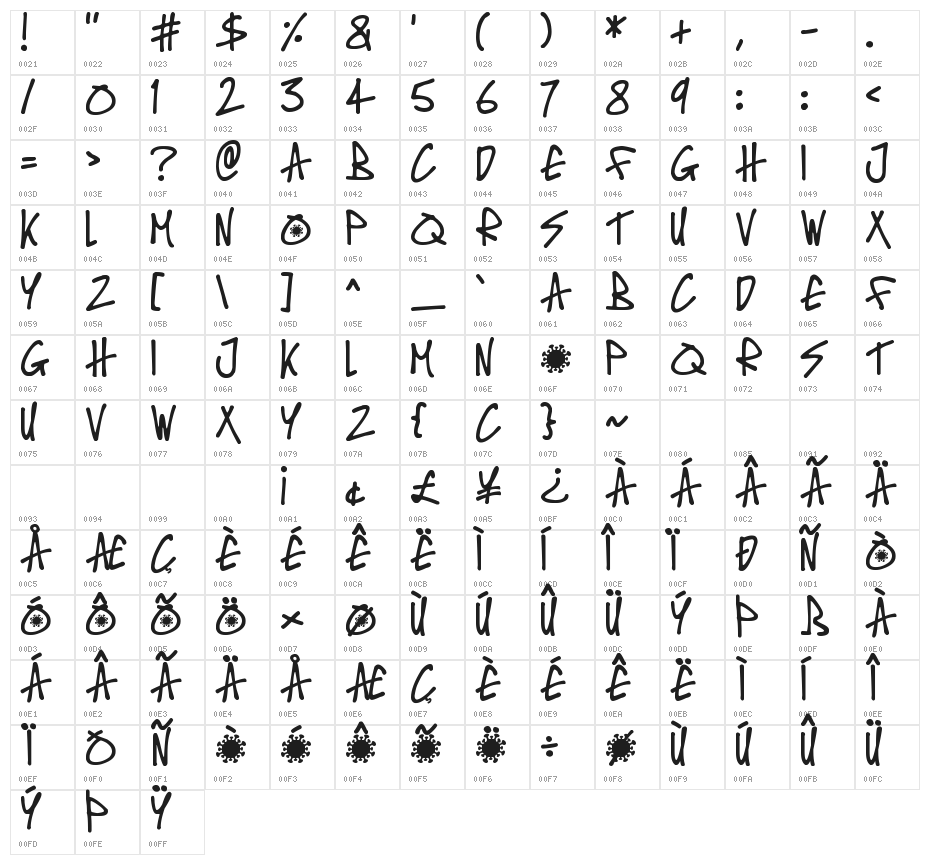 ! " # $ % & ' ( ) * + , - .
0021 0022 0023 0024 0025 0026 0027 0028 0029 002A 002B 002C 002D 002E
/ 0 1 2 3 4 5 6 7 8 9 : : <
002F 0030 0031 0032 0033 0034 0035 0036 0037 0038 0039 003A 003B 003C
= > ? @ A B C D E F G H I J
003D 003E 003F 0040 0041 0042 0043 0044 0045 0046 0047 0048 0049 004A
K L M N O P Q R S T U V W X
004B 004C 004D 004E 004F 0050 0051 0052 0053 0054 0055 0056 0057 0058
Y Z [ \ ] ^ _ ` A B C D E F
0059 005A 005B 005C 005D 005E 005F 0060 0061 0062 0063 0064 0065 0066
G H I J K L M N O P Q R S T
0067 0068 0069 006A 006B 006C 006D 006E 006F 0070 0071 0072 0073 0074
U V W X Y Z { C } ~
0075 0076 0077 0078 0079 007A 007B 007C 007D 007E 0080 0085 0091 0092
¡ ¢ £ ¥ ¿ À Á Â Ã Ä
0093 0094 0099 00A0 00A1 00A2 00A3 00A5 00BF 00C0 00C1 00C2 00C3 00C4
Å Æ Ç È É Ê Ë Ì Í Î Ï Ð Ñ Ò
00C5 00C6 00C7 00C8 00C9 00CA 00CB 00CC 00CD 00CE 00CF 00D0 00D1 00D2
Ó Ô Õ Ö × Ø Ù Ú Û Ü Ý Þ ß À
00D3 00D4 00D5 00D6 00D7 00D8 00D9 00DA 00DB 00DC 00DD 00DE 00DF 00E0
Á Â Ã Ä Å Æ Ç È É Ê Ë Ì Í Î
00E1 00E2 00E3 00E4 00E5 00E6 00E7 00E8 00E9 00EA 00EB 00EC 00ED 00EE
Ï ð Ñ Ò Ó Ô Õ Ö ÷ Ø Ù Ú Û Ü
00EF 00F0 00F1 00F2 00F3 00F4 00F5 00F6 00F7 00F8 00F9 00FA 00FB 00FC
Ý Þ Ÿ
00FD 00FE 00FF